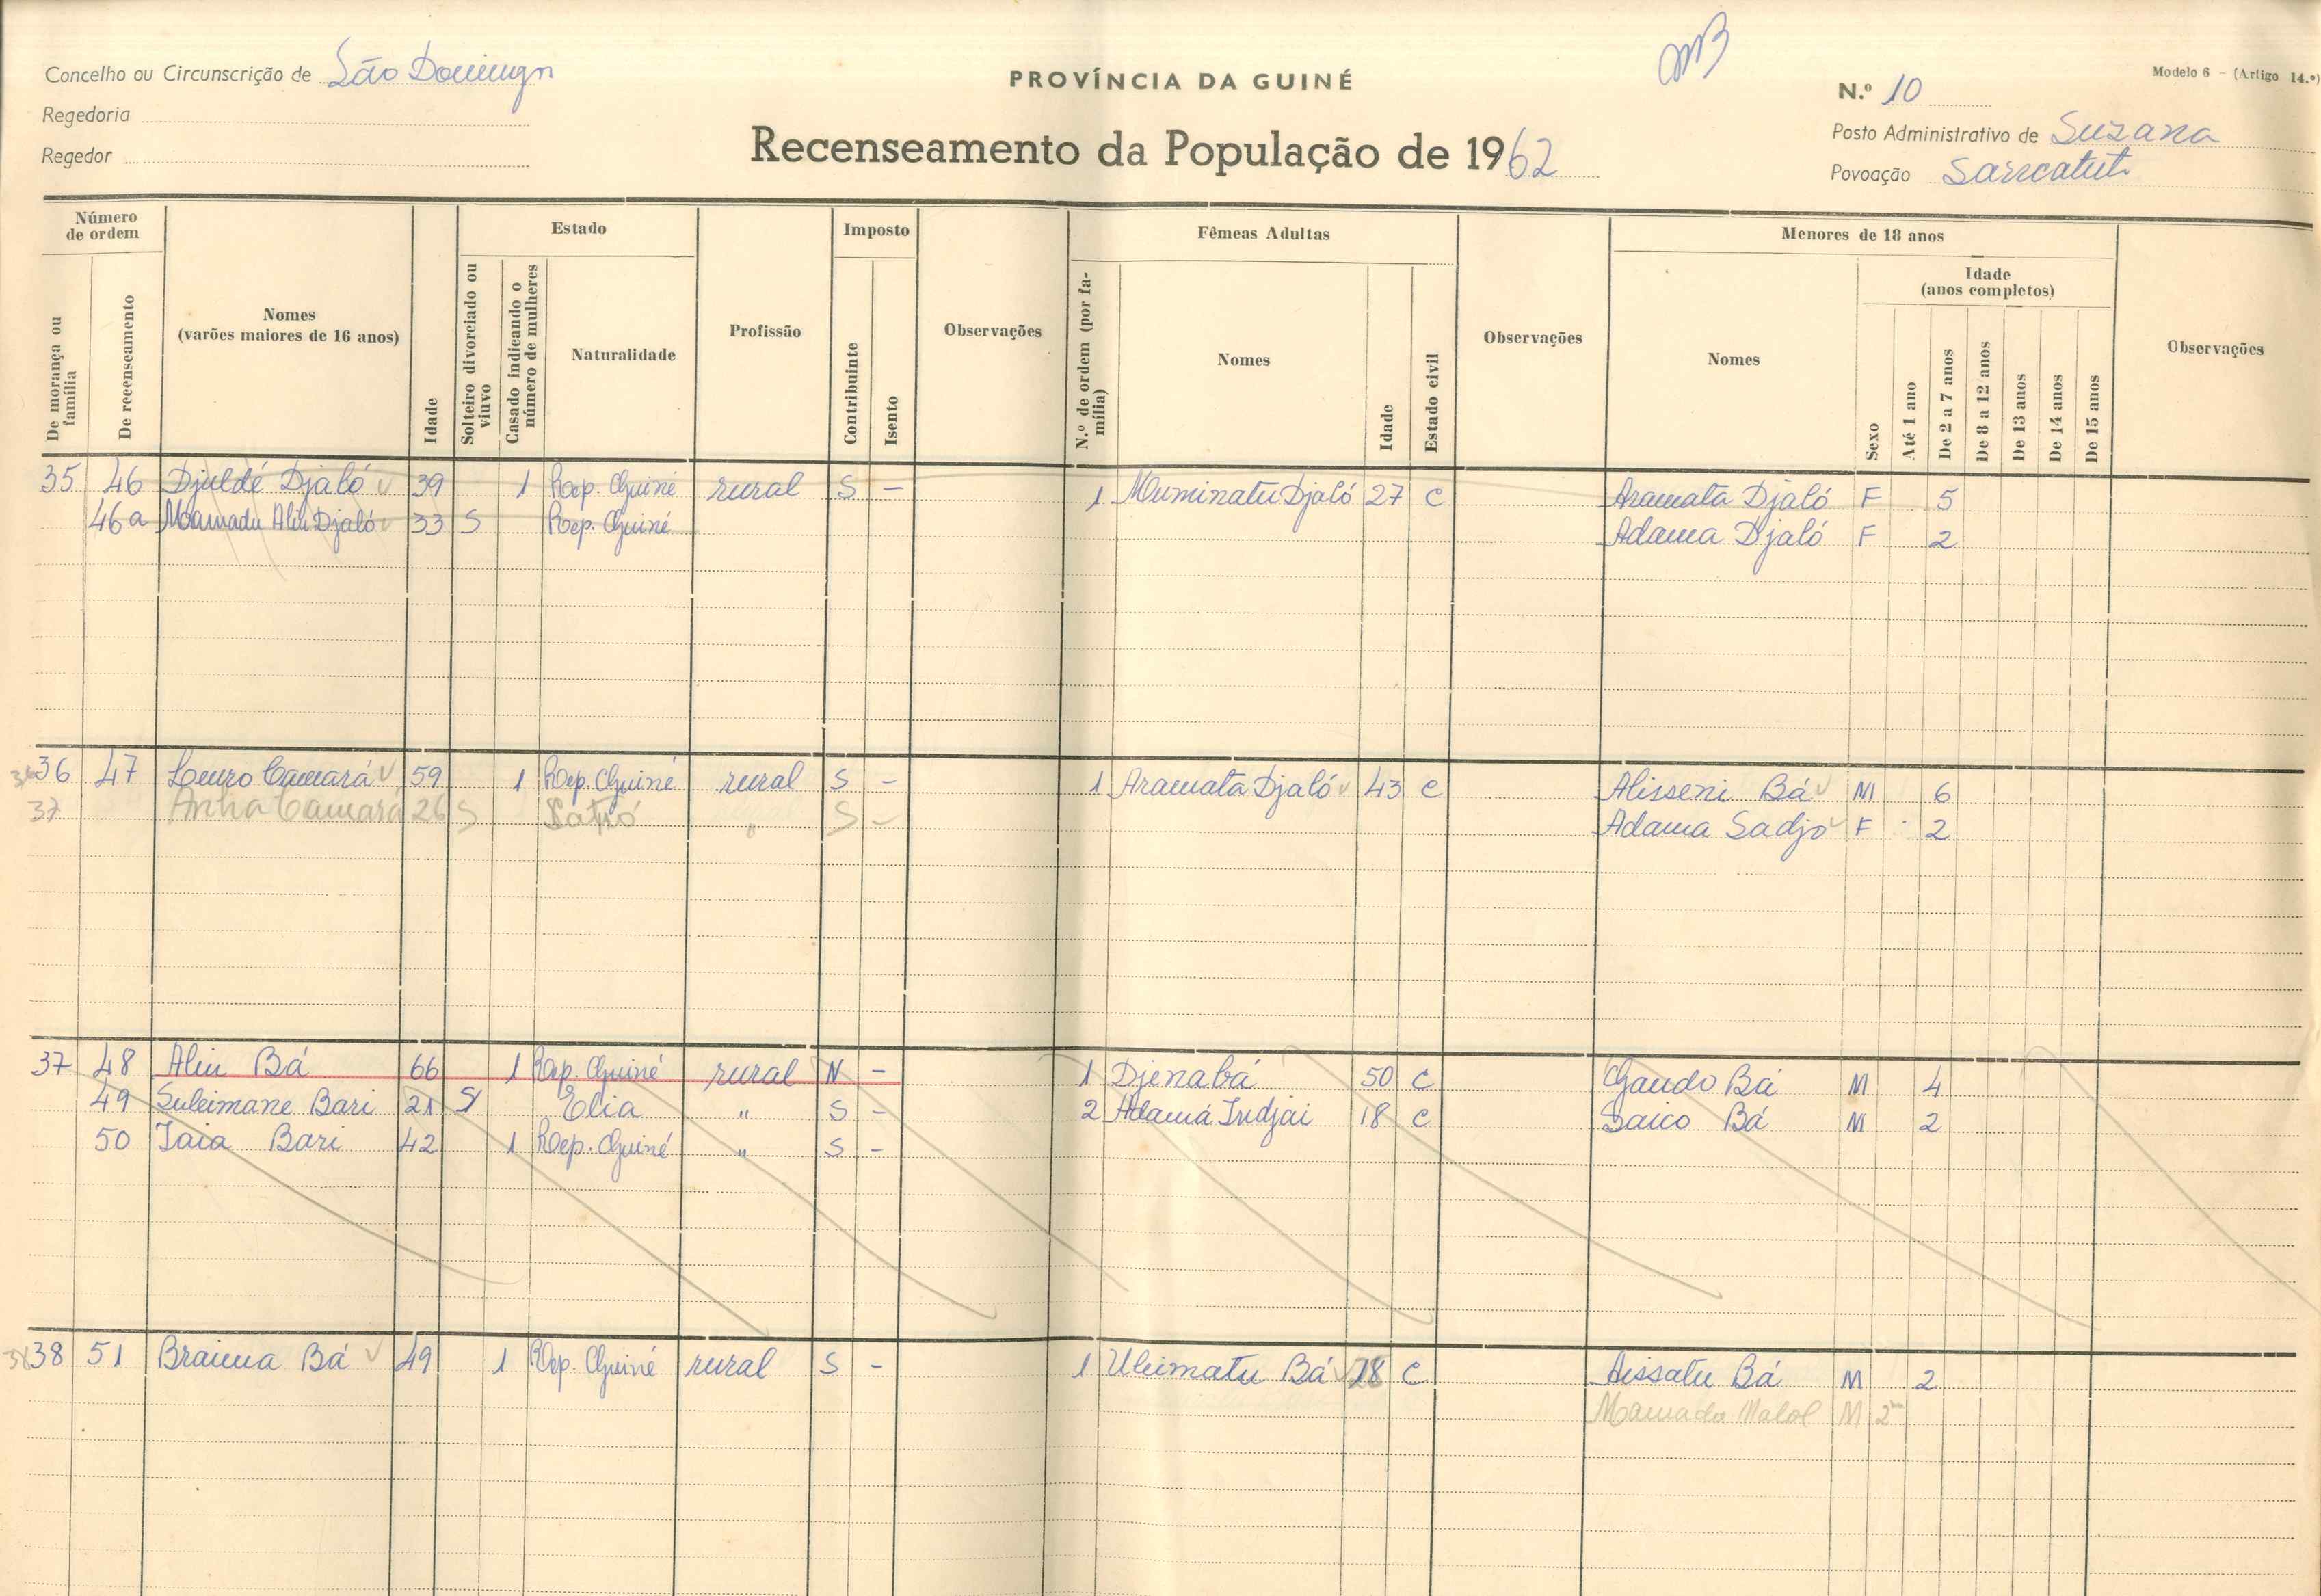 Concelho ou Circunscrição de São Domingos
Regedoria
Regedor
PROVÍNCIA DA GUINÉ
Recenseamento da População de 1962
Modelo 6 - (Artigo 14.º)
N.º 10
Posto Administrativo de Suzana
Povoação
Número de ordem
De morança ou família
De recenseamento
Nomes
(varões maiores de 16 anos)
Idade
Estado
Solteiro divorciado ou viuvo
Casado indicando o número de mulheres
Naturalidade
Profissão
Imposto
Contribuinte
Isento
Observações
Fêmeas Adultas
N.º de ordem (por família)
Nomes
Idade
Estado civil
Observações
Menores de 18 anos
Nomes
Sexo
Idade
(anos completos)
Até 1 ano
De 2 a 7 anos
De 8 a 12 anos
De 13 anos
De 14 anos
De 15 anos
Observações
35 46 Djuldé Djaló 39 1 Rep. Guiné rural S - 1 Muminatu Djaló 27 C Aramata Djaló F 5
46a Mamadu Aliu Djaló 33 S Rep. Guiné Adama Djaló F 2
36 36 47 Camará 59 1 Rep. Guiné rural S - 1 Aramata Djaló 43 C Alisseni Bá M 6
37 Camará 26 S " S - Adama Sadjo F 2
37 48 Aliu Bá 66 1 Rep. Guiné rural N - 1 Djenabá 50 C Gaudo Bá M 4
49 Suleimane Bari 21 S Elia " S - 2 Adamá Indjai 18 C Saico Bá M 2
50 Iaia Bari 42 1 Rep. Guiné " S -
38 51 Braima Bá 49 1 Rep. Guiné rural S - 1 Uleimatu Bá 18 28 C Aissatu Bá M 2
Mamadu Malal M 2